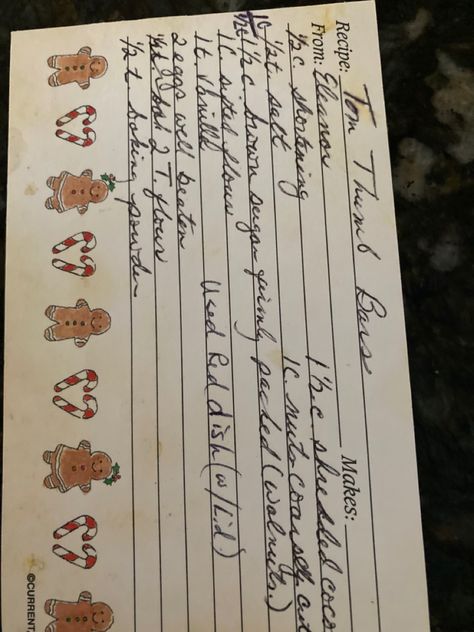 Recipe: Tom Thumb Bars Makes:
From: Eleanor
½ c. shortening 1½ c. shredded coco
½ t. salt 1 c. nuts coarsely cut
1½ c. brown sugar firmly packed (walnuts.)
1 c. sifted flour
1 t. vanilla Used Red dish (w/ Lid)
2 eggs well beaten
2 T. flour
½ t. baking powder
©CURRENT,